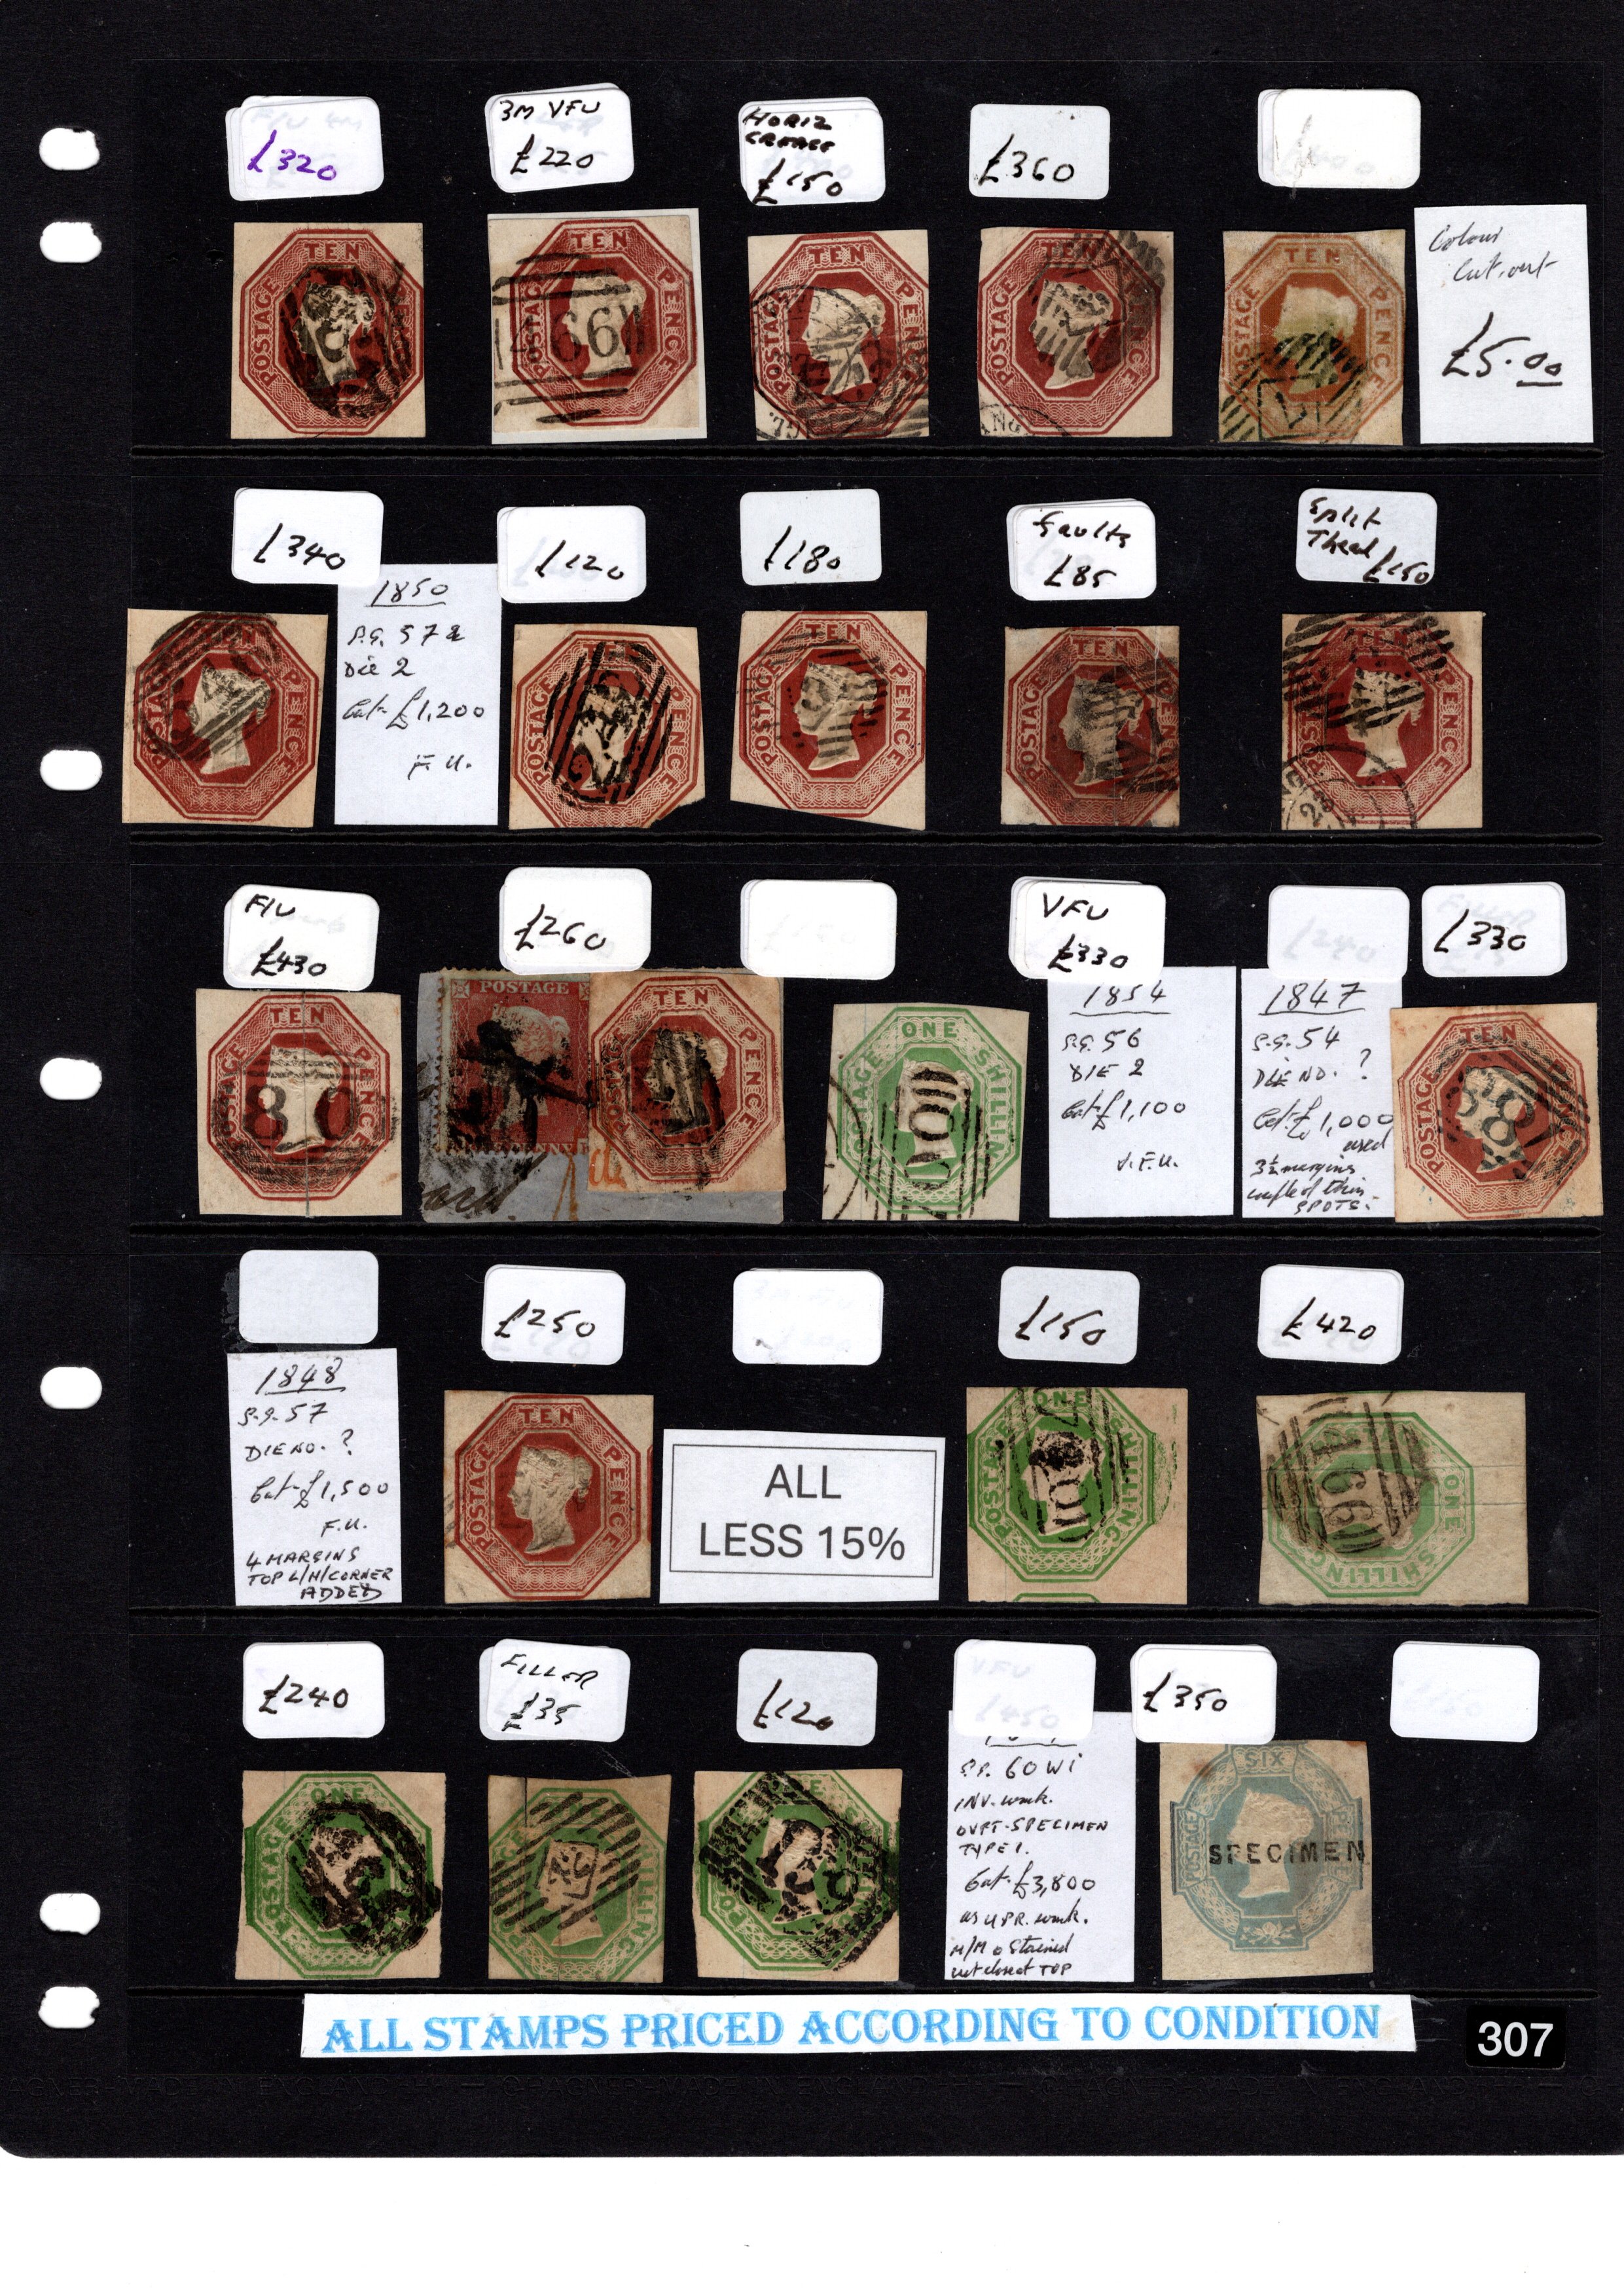 £320
3M VFU
£220
HORIZ
CREASE
£150
£360
Colour
Cut-out
£5.00
TEN
POSTAGE
PENCE
TEN
POSTAGE
PENCE
466
TEN
POSTAGE
PENCE
TEN
POSTAGE
PENCE
TEN
POSTAGE
PENCE
£340
1850
S.G. 57a
Die 2
Cat £1,200
F.U.
£120
£180
Faults
£85
Split
Thread
£150
POSTAGE
PENCE
POSTAGE
PENCE
TEN
POSTAGE
PENCE
TEN
POSTAGE
PENCE
TEN
POSTAGE
PENCE
F/U
£430
£260
VFU
£330
1854
S.G. 56
DIE 2
Cat £1,100
V.F.U.
1847
S.G. 54
DIE NO. ?
Cat. £1,000
used
3½ margins
couple of thin
SPOTS.
£330
TEN
POSTAGE
PENCE
POSTAGE
TEN
PENCE
ONE
POSTAGE
SHILLING
TEN
POSTAGE
1848
S.G. 57
DIE NO. ?
Cat £1,500
F.U.
4 MARGINS
TOP L/H/CORNER
ADDED
£250
£150
£420
TEN
POSTAGE
PENCE
ALL
LESS 15%
ONE
POSTAGE
SHILLING
ONE
SHILLING
466
£240
FILLER
£35
£120
VFU
£450
S.G. 60Wi
INV. wmk.
OVPT-SPECIMEN
TYPE 1.
Cat £3,800
as UPR. wmk.
M/M o Stained
cut close at TOP
£350
ONE
POSTAGE
SIX
POSTAGE
PENCE
SPECIMEN
ALL STAMPS PRICED ACCORDING TO CONDITION
307